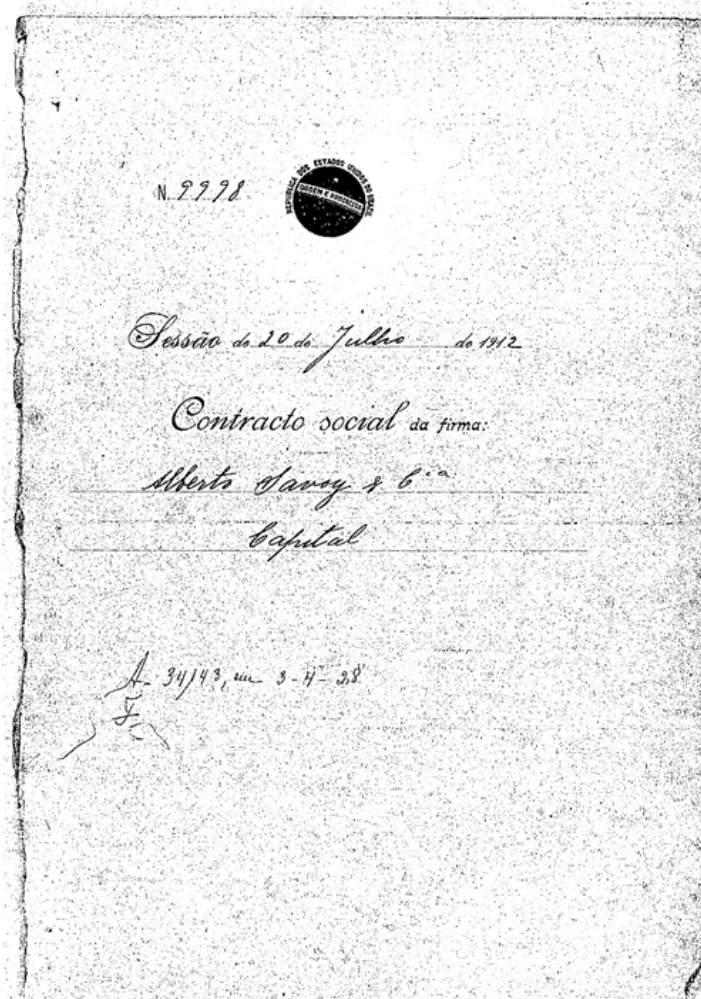 N. 9998
REPUBLICA DOS ESTADOS UNIDOS DO BRAZIL
ORDEM E PROGRESSO
Sessão de 20 de Julho de 1912
Contracto social da firma:
Alberto Savoy & Cia
Capital
A- 34143, em 3-4-28